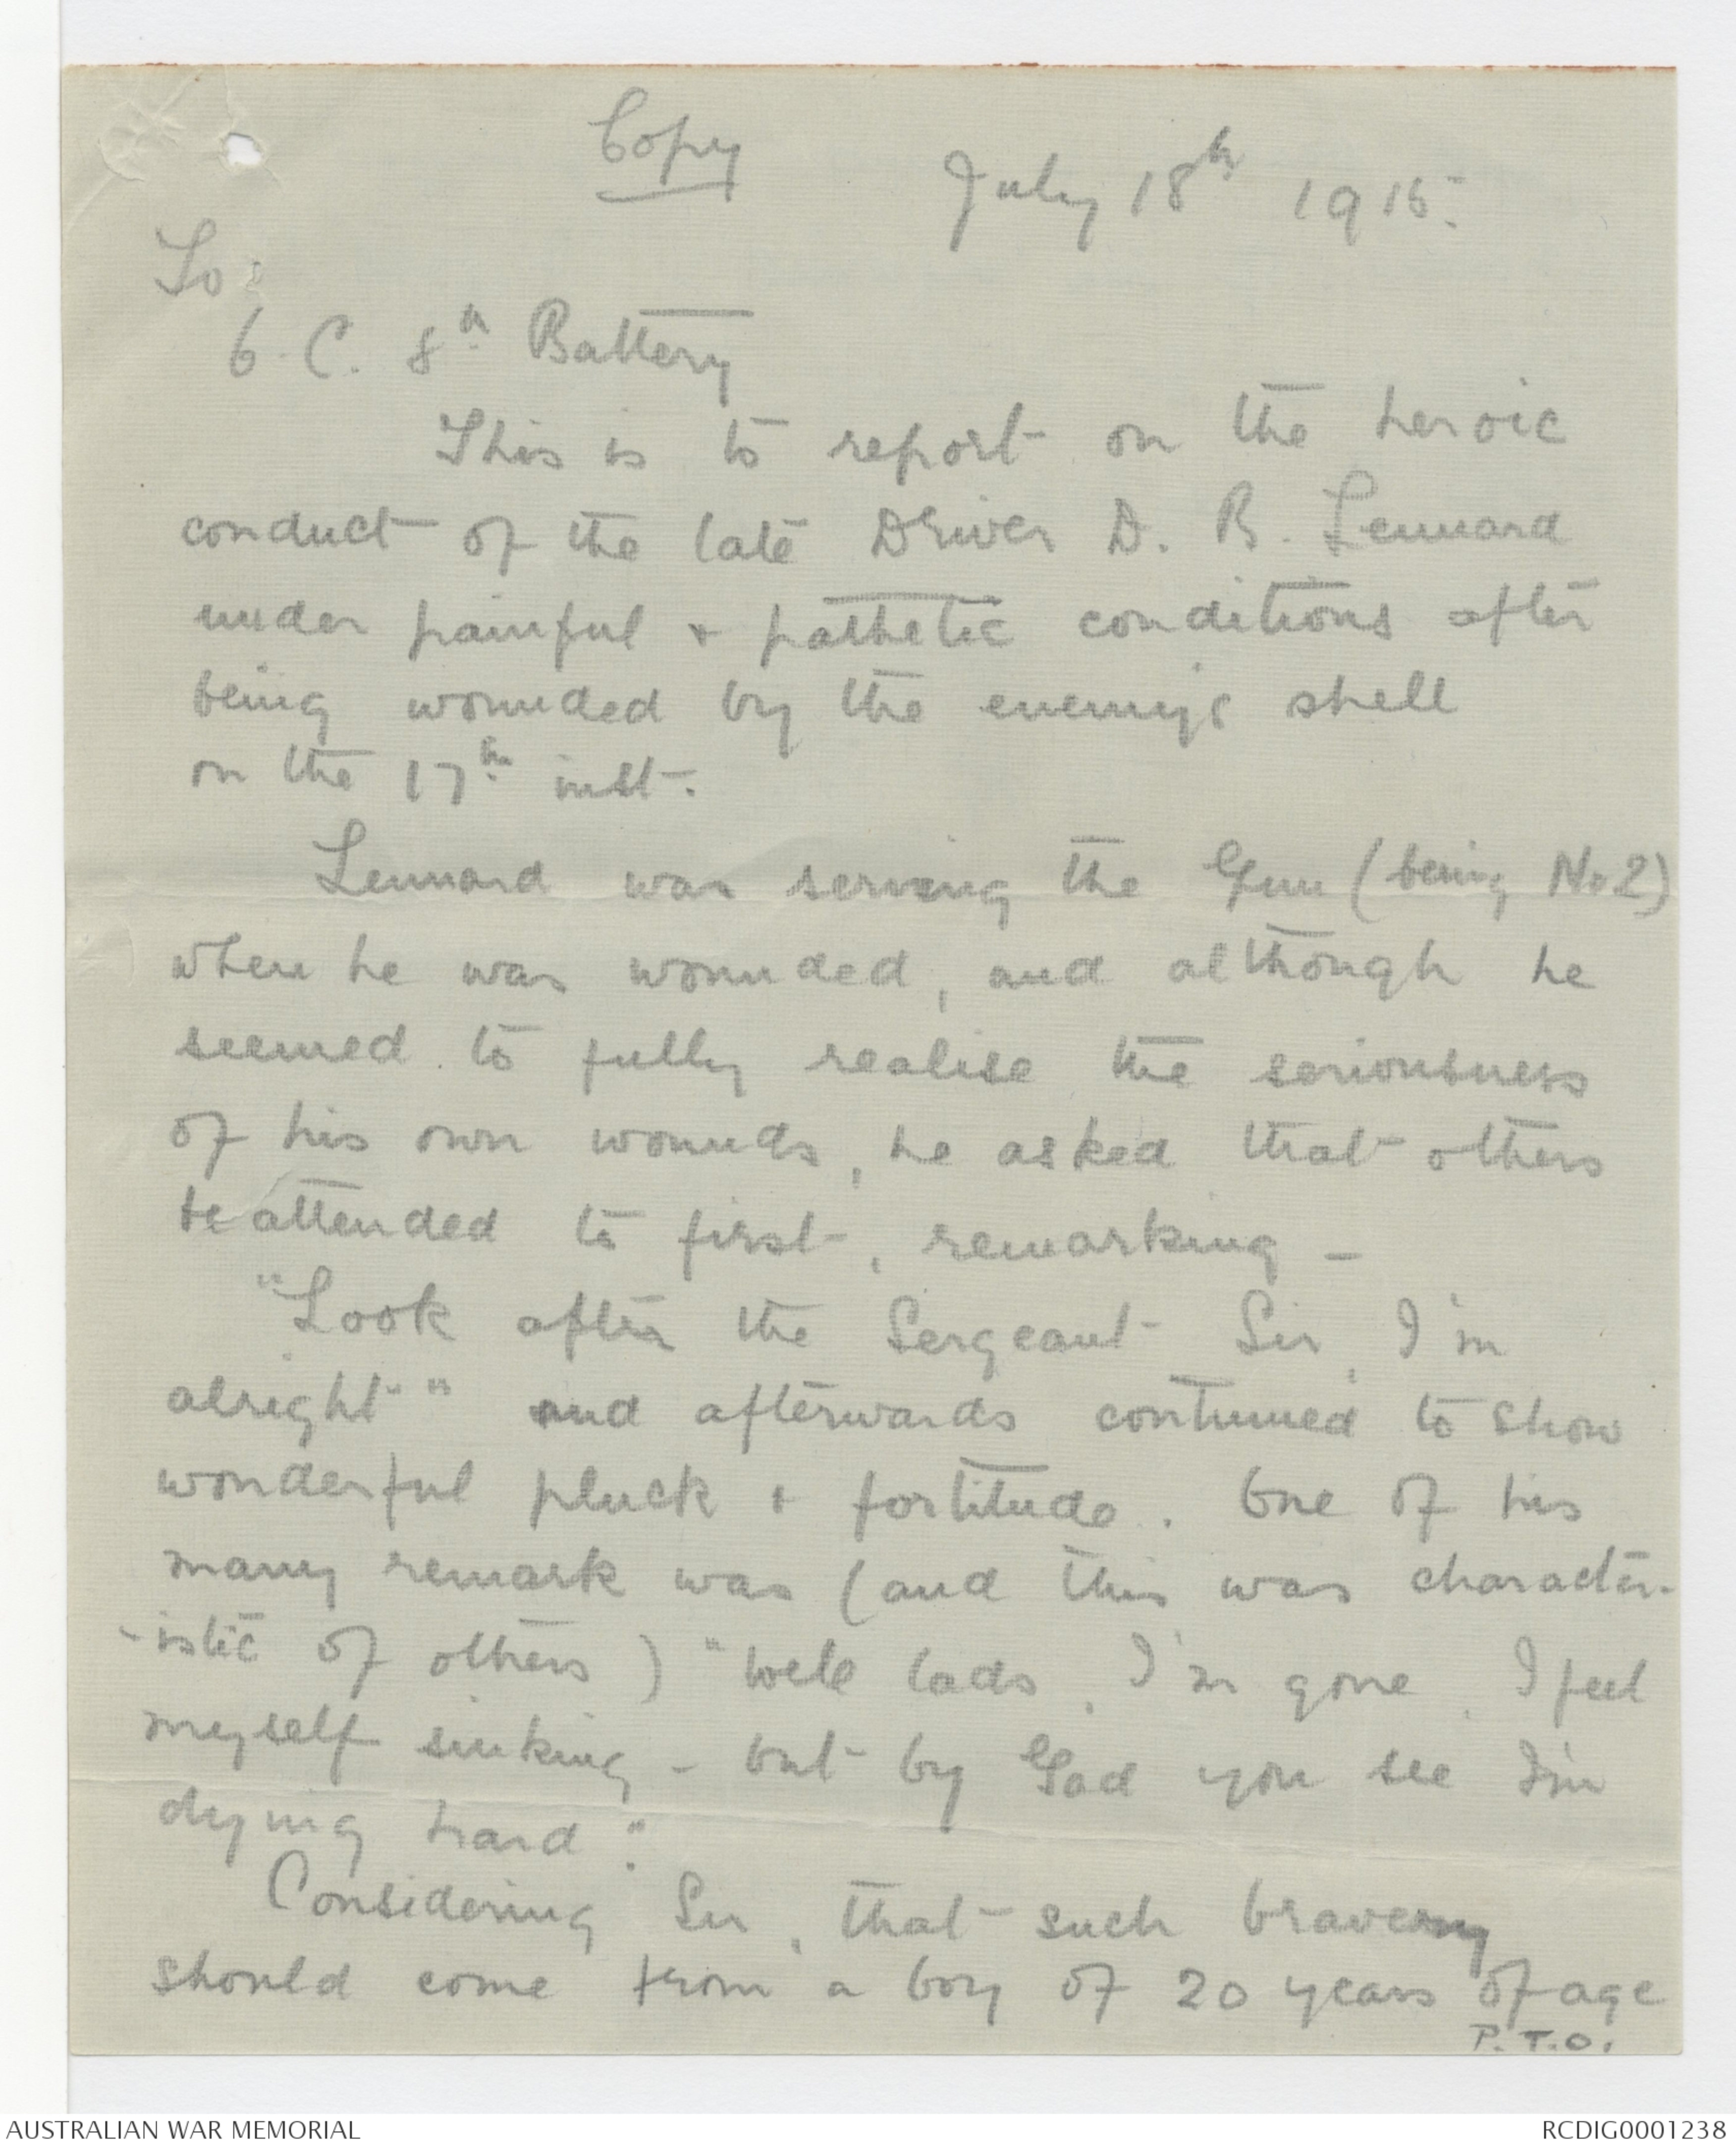 Copy
July 18th 1915.
To:
O. C. 8th Battery
This is to report on the heroic
conduct of the late Driver D. B. Lennard
under painful & pathetic conditions after
being wounded by the enemy's shell
on the 17th inst.
Lennard was serving the Gun (being No 2)
when he was wounded, and although he
seemed to fully realise the seriousness
of his own wounds, he asked that others
be attended to first, remarking –
"Look after the Sergeant Sir, I'm
alright" and afterwards continued to show
wonderful pluck & fortitude. One of his
many remark was (and this was character-
-istic of others) "Well lads, I'm gone, I feel
myself sinking – but by God you see I'm
dying hard".
Considering Sir, that such bravery
should come from a boy of 20 years of age
P.T.O.
AUSTRALIAN WAR MEMORIAL
RCDIG0001238